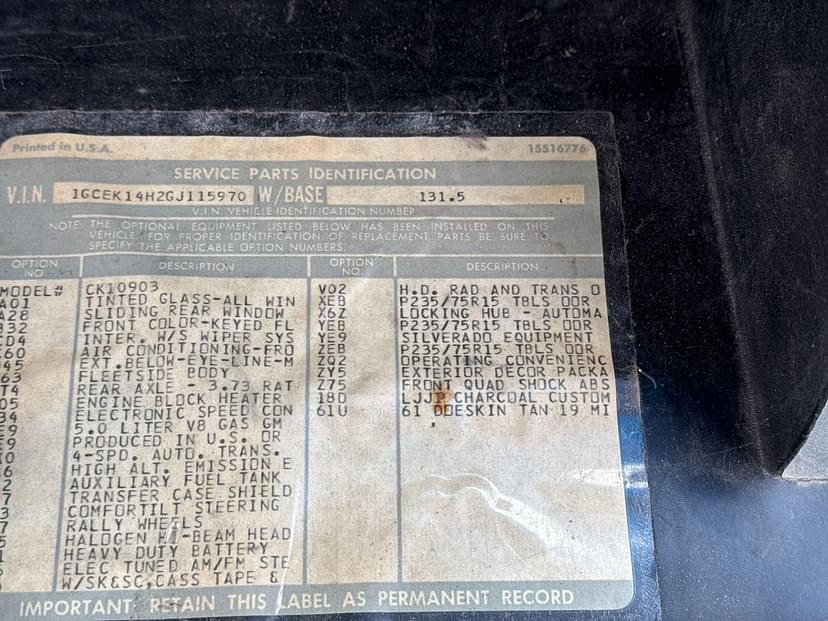 Printed in U.S.A. 15516776
SERVICE PARTS IDENTIFICATION
V.I.N. 1GCEK14H2GJ115970 W/BASE 131.5
V.I.N. VEHICLE IDENTIFICATION NUMBER
NOTE: THE OPTIONAL EQUIPMENT LISTED BELOW HAS BEEN INSTALLED ON THIS
VEHICLE. FOR PROPER IDENTIFICATION OF REPLACEMENT PARTS BE SURE TO
SPECIFY THE APPLICABLE OPTION NUMBERS.
OPTION NO. DESCRIPTION OPTION NO. DESCRIPTION
MODEL# CK10903
A01 TINTED GLASS-ALL WIN
A28 SLIDING REAR WINDOW
B32 FRONT COLOR-KEYED FL
CD4 INTER. W/S WIPER SYS
C60 AIR CONDITIONING-FRO
D45 EXT.BELOW-EYE-LINE-M
63 FLEETSIDE BODY
T4 REAR AXLE - 3.73 RAT
05 ENGINE BLOCK HEATER
34 ELECTRONIC SPEED CON
E9 5.0 LITER V8 GAS GM
E9 PRODUCED IN U.S. OR
0 4-SPD. AUTO. TRANS.
6 HIGH ALT. EMISSION E
2 AUXILIARY FUEL TANK
7 TRANSFER CASE SHIELD
3 COMFORTILT STEERING
7 RALLY WHEELS
5 HALOGEN HI-BEAM HEAD
1 HEAVY DUTY BATTERY
ELEC TUNED AM/FM STE
W/SK&SC,CASS TAPE &
V02 H.D. RAD AND TRANS O
XEB P235/75R15 TBLS OOR
X6Z LOCKING HUB - AUTOMA
YEB P235/75R15 TBLS OOR
YE9 SILVERADO EQUIPMENT
ZEB P235/75R15 TBLS OOR
ZQ2 OPERATING CONVENIENC
ZY5 EXTERIOR DECOR PACKA
Z75 FRONT QUAD SHOCK ABS
18D CHARCOAL CUSTOM
61U 61 DOESKIN TAN 19 MI
IMPORTANT: RETAIN THIS LABEL AS PERMANENT RECORD